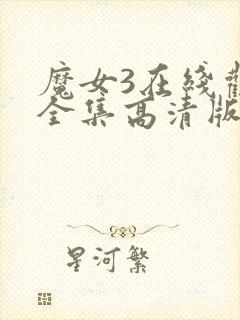 魔女3在线
全集高清版
星河繁